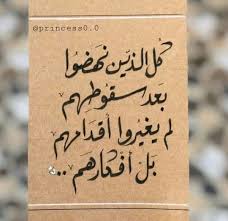 @princess0.0
كل الذين نهضوا
بعد سقوطهم
لم يغيروا أقدامهم
بل أفكارهم ..